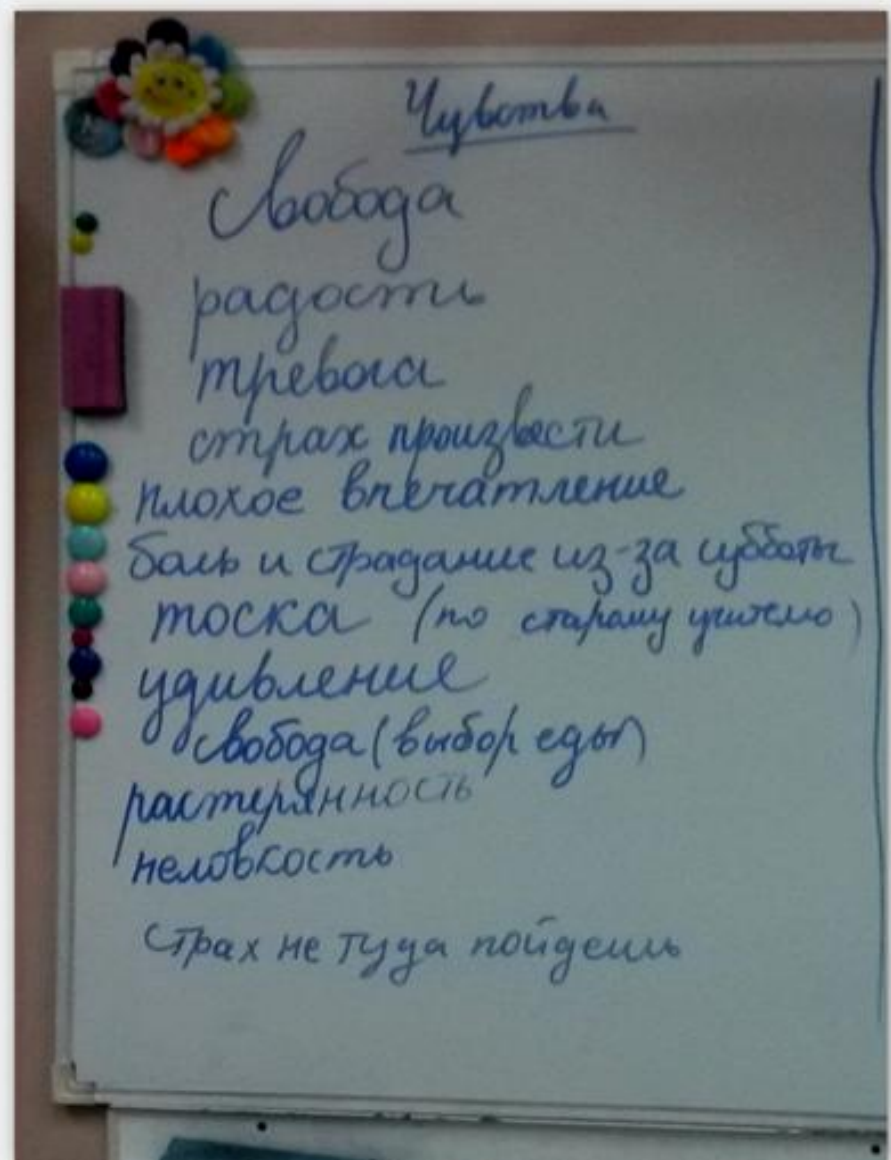 Чувства
Свобода
радость
тревога
страх произвести
плохое впечатление
боль и страдание из-за субботы
тоска (по старому учителю)
удивление
свобода (выбор еды)
растерянность
неловкость
Страх не туда пойдешь